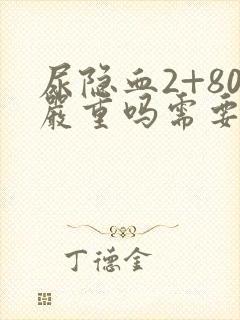 尿隐血2+80
严重吗需要
丁德金